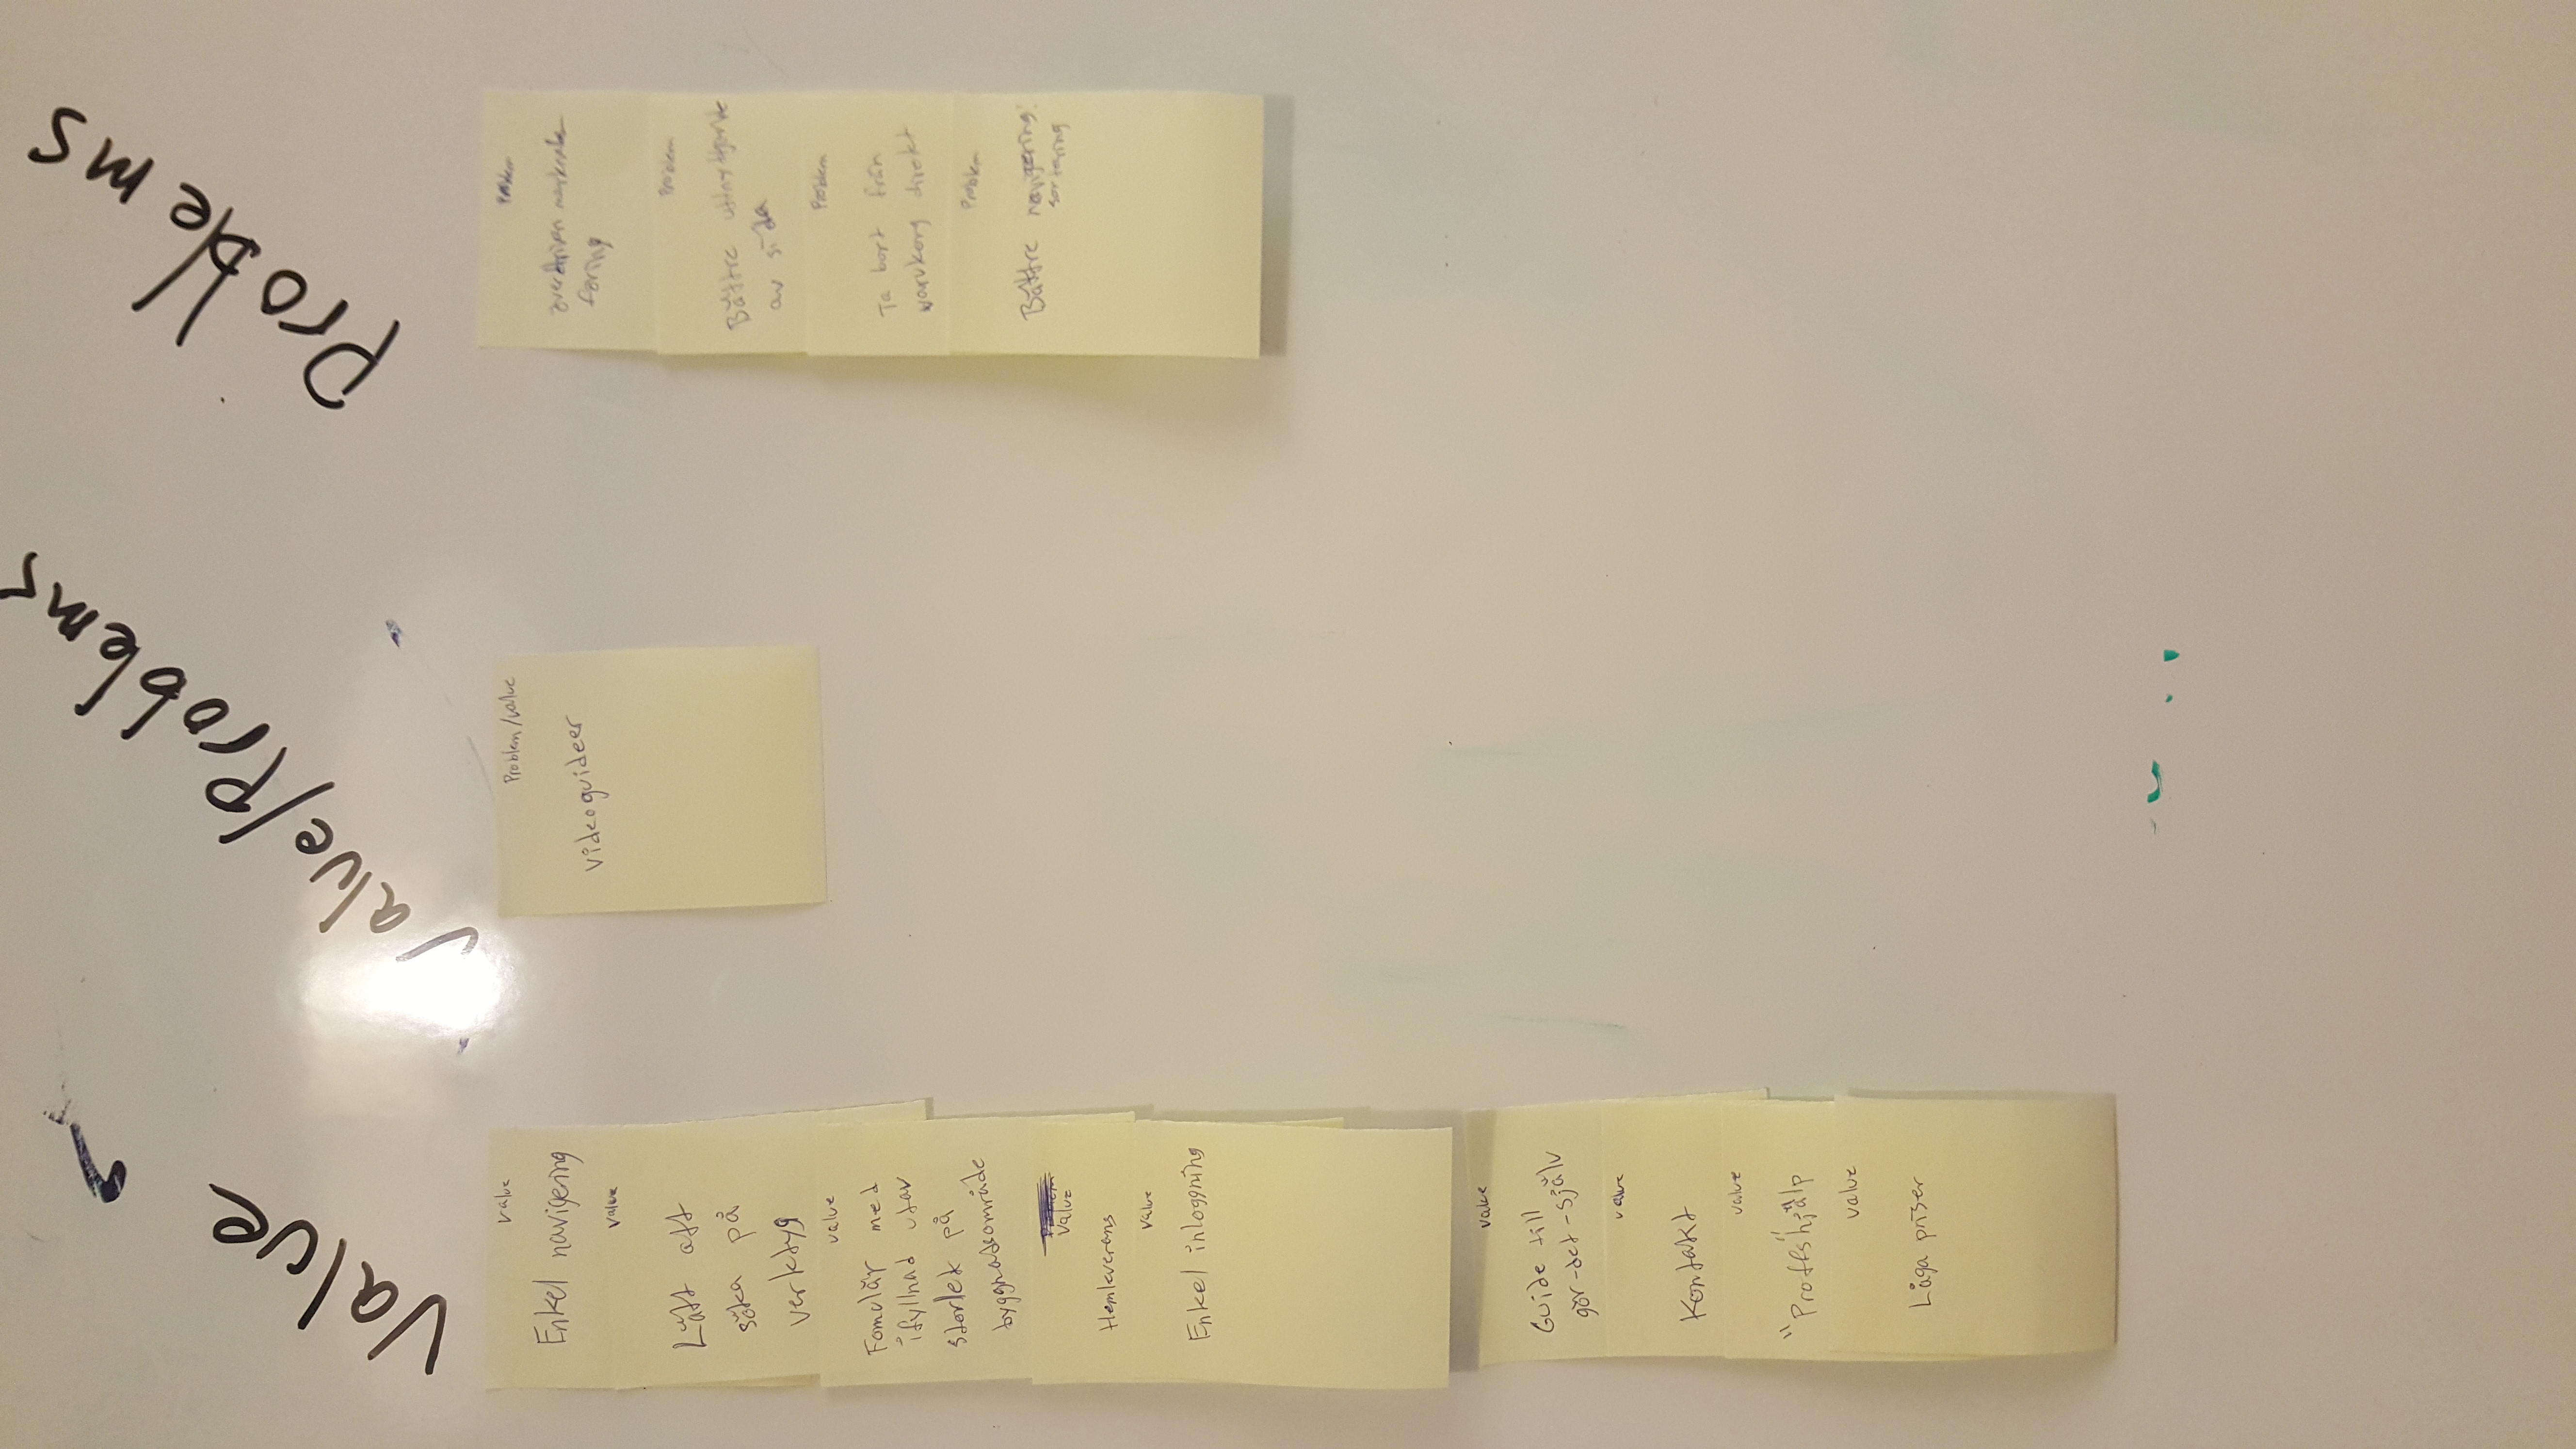 Value
Value/Problems
Problems
Value
Enkel navigering
Value
Lätt att
söka på
verktyg
value
Fomolär med
ifyllnad utav
storlek på
byggnadsområde
Value
Hemleverans
Value
Enkel inloggning
value
Guide till
gör-det-själv
value
Kontakt
value
"Proffs"hjälp
value
Låga priser
Problem/value
Videoguideer
Problem
överdriven marknads
föring
Problem
Bättre utnyttjande
av sida
Problem
Ta bort från
varukorg direkt
Problem
Bättre navigering:
sortering